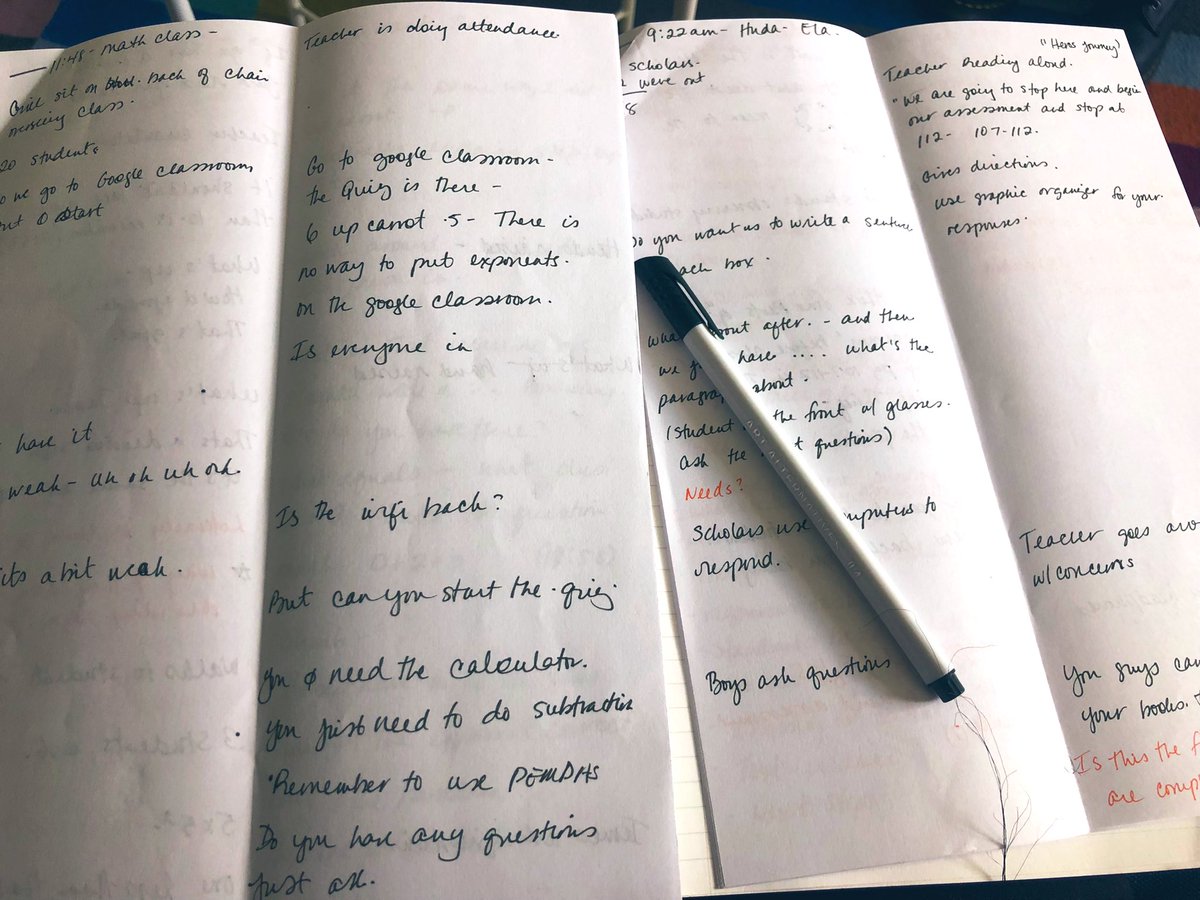 11:48 - math class -
Girl sit on back of chair
overseeing class.
20 students
we go to Google Classroom
start
have it
weak - uh oh uh oh.
its a bit weak.
Teacher is doing attendance
Go to google classroom -
the Quiz is there -
6 up carrot .5 - There is
no way to put exponents.
on the google classroom.
Is everyone in
Is the wifi back?
But can you start the quiz
You need the calculator.
you just need to do subtraction
"Remember to use PEMDAS
Do you have any questions
just ask.
9:22am - Huda - Ela.
scholars.
2 were out
8
Do you want us to write a sentence
each box.
about after. - and then
we have .... what's the
about.
(student the front w/ glasses.
ask the questions)
Needs?
Scholars use computers to
respond.
Boys ask questions
"Heros Journey"
Teacher Reading aloud.
"We are going to stop here and begin
our assessment and stop at
112 - 107-112.
Gives directions.
use graphic organizer for your
responses.
Teacher goes
w/ concerns
You guys can
your books.
Is this the
are